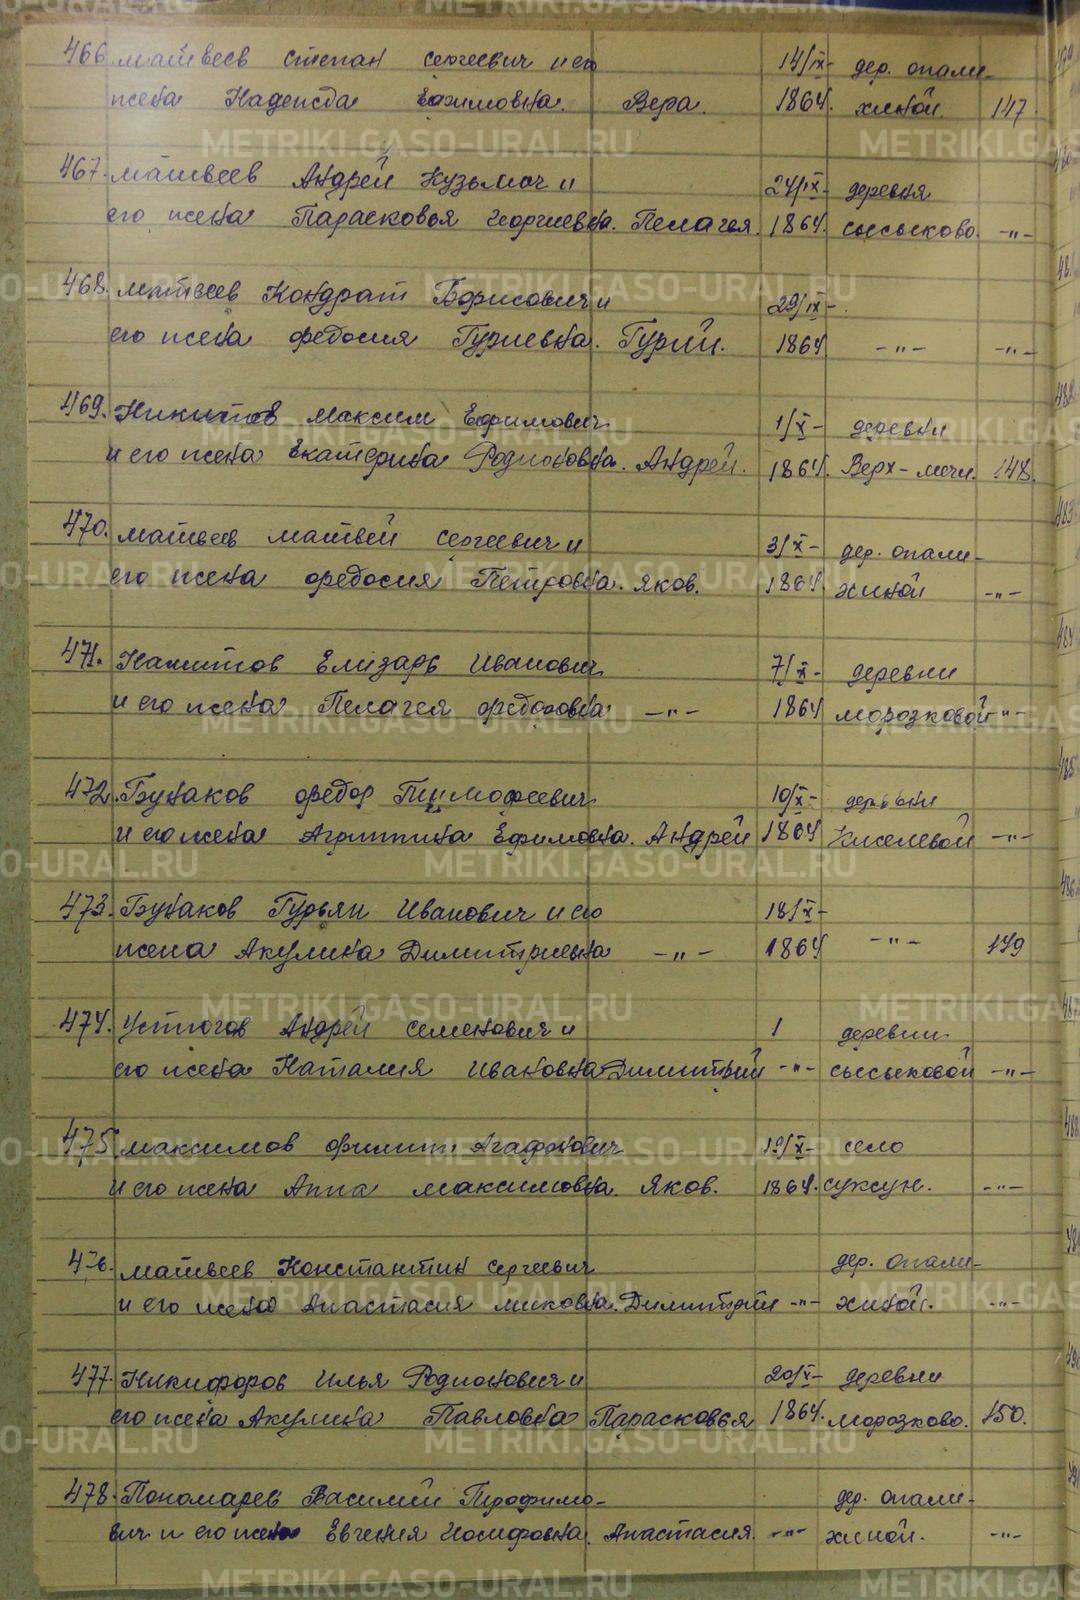 466. Матвеев Степан Сергеевич и его 14/IX- дер. Опали-
жена Надежда Ефимовна. Вера. 1864. хиной. 147
467. Матвеев Андрей Кузьмич и 24/IX- деревня
его жена Парасковья Георгиевна. Пелагея. 1864. Сысыково. -"-
468. Матвеев Кондрат Борисович и 29/IX-
его жена Федосия Гуриевна. Гурий. 1864 -"- -"-
469. Никитов Максим Ефимович 1/X- деревни
и его жена Екатерина Родионовна. Андрей. 1864. Верх-мечи. 148.
470. Матвеев Матвей Сергеевич и 3/X- дер. Опали-
его жена Федосия Петровна. Яков. 1864. хиной -"-
471. Елизарь Иванович 7/X- деревни
и его жена Пелагея Федоровна -"- 1864 Морозковой -"-
472. Бунаков Федор Тимофеевич 10/X- деревни
и его жена Агриппина Ефимовна. Андрей 1864 Киселевой -"-
473. Бунаков Гурьян Иванович и его 18/X-
жена Акулина Димитриевна -"- 1864 -"- 149
474. Устюгов Андрей Семенович и 1 деревни
его жена Наталия Ивановна Димитрий -"- Сысыковой -"-
475. Максимов Филипп Агафонович 19/X- село
и его жена Анна Максимовна. Яков. 1864. Суксун. -"-
476. Матвеев Константин Сергеевич дер. Опали-
и его жена Анастасия Димитрий -"- хиной. -"-
477. Никифоров Илья Родионович и 20/X- деревни
его жена Акулина Павловна Парасковья 1864. Морозково. 150.
478. Пономарев Василий Трофимо- дер. Опали-
вич и его жена Евгения Иосифовна. Анастасия. -"- хиной. -"-
METRIKI.GASO-URAL.RU